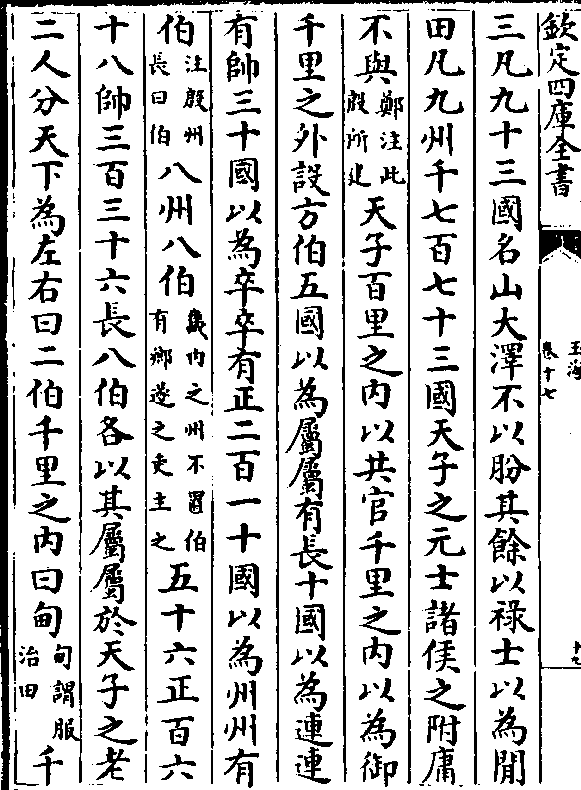 欽定四庫全書
玉海
卷十七
十九
三凡九十三國名山大澤不以肦其餘以祿士以為閒
田凡九州千七百七十三國天子之元士諸侯之附庸
不與鄭注此殷所建天子百里之內以共官千里之內以為御
千里之外設方伯五國以為屬屬有長十國以為連連
有帥三十國以為卒卒有正二百一十國以為州州有
伯注殷州長曰伯八州八伯畿內之州不置伯有鄉遂之吏主之五十六正百六
十八帥三百三十六長八伯各以其屬屬於天子之老
二人分天下為左右曰二伯千里之內曰甸甸謂服治田千